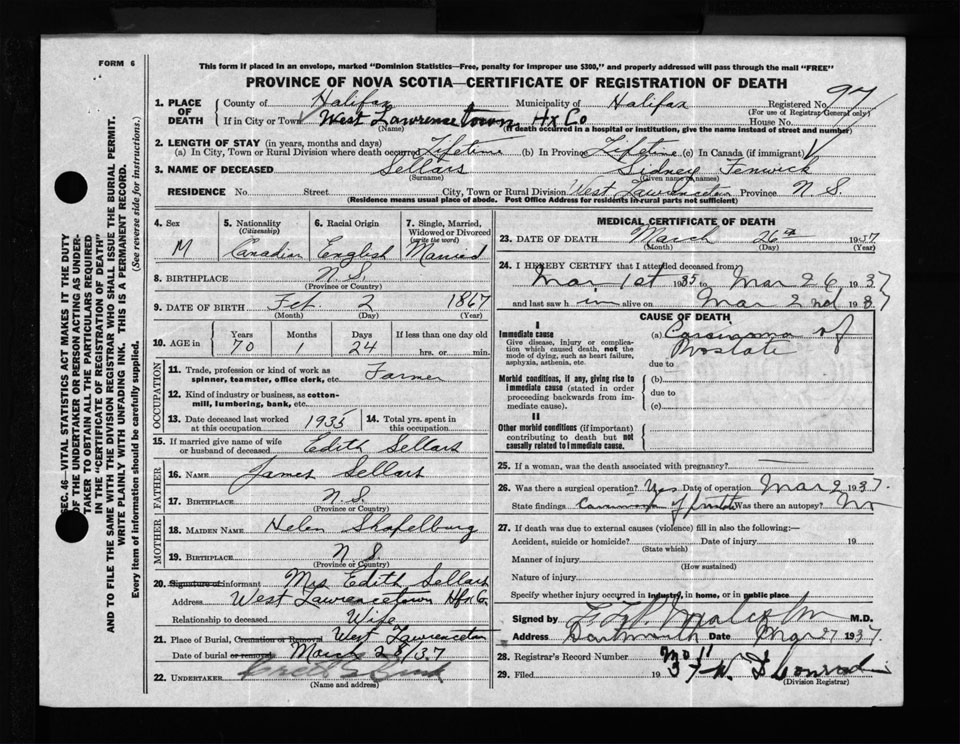 FORM 6
This form if placed in an envelope, marked "Dominion Statistics—Free, penalty for improper use $300," and properly addressed will pass through the mail "FREE"
PROVINCE OF NOVA SCOTIA—CERTIFICATE OF REGISTRATION OF DEATH
SEC. 46—VITAL STATISTICS ACT MAKES IT THE DUTY
OF THE UNDERTAKER OR PERSON ACTING AS UNDER-
TAKER TO OBTAIN ALL THE PARTICULARS REQUIRED
IN THE "CERTIFICATE OF REGISTRATION OF DEATH"
AND TO FILE THE SAME WITH THE DIVISION REGISTRAR WHO SHALL ISSUE THE BURIAL PERMIT.
WRITE PLAINLY WITH UNFADING INK. THIS IS A PERMANENT RECORD.
Every item of information should be carefully supplied. (See reverse side for instructions.)
1. PLACE OF DEATH County of Halifax Municipality of Halifax Registered No. 97
(For use of Registrar General only)
If in City or Town West Lawrencetown Hx Co House No.
(Name) (If death occurred in a hospital or institution, give the name instead of street and number)
2. LENGTH OF STAY (in years, months and days)
(a) In City, Town or Rural Division where death occurred Lifetime (b) In Province Lifetime (c) In Canada (if immigrant)
3. NAME OF DECEASED Sellars Sidney Fenwick
(Surname) (Given name or names)
RESIDENCE No. Street City, Town or Rural Division West Lawrencetown Province N S
(Residence means usual place of abode. Post Office Address for residents in rural parts not sufficient)
4. Sex 5. Nationality 6. Racial Origin 7. Single, Married,
(Citizenship) Widowed or Divorced
(write the word)
M Canadian English Married
8. BIRTHPLACE N.S.
(Province or Country)
9. DATE OF BIRTH Feb. 2 1867
(Month) (Day) (Year)
10. AGE in Years Months Days If less than one day old
70 1 24 hrs. or min.
OCCUPATION
11. Trade, profession or kind of work as
spinner, teamster, office clerk, etc. Farmer
12. Kind of industry or business, as cotton-
mill, lumbering, bank, etc.
13. Date deceased last worked 14. Total yrs. spent in
at this occupation 1935 this occupation
15. If married give name of wife
or husband of deceased Edith Sellars
FATHER
16. NAME James Sellars
17. BIRTHPLACE N.S.
(Province or Country)
MOTHER
18. MAIDEN NAME Helen Shafelburg
19. BIRTHPLACE N.S.
(Province or Country)
20. Signature of informant Mrs Edith Sellars
Address West Lawrencetown Hfx Co.
Relationship to deceased Wife
21. Place of Burial, Cremation or Removal West Lawrencetown
Date of burial or removal March 28/37
22. UNDERTAKER
(Name and address)
MEDICAL CERTIFICATE OF DEATH
23. DATE OF DEATH March 26th 1937
(Month) (Day) (Year)
24. I HEREBY CERTIFY that I attended deceased from
Mar 1st 1935 to Mar 26 1937
and last saw h im alive on Mar 2nd 1937
CAUSE OF DEATH
I
Immediate cause (a) Carcinoma of
Give disease, injury or complica- Prostate
tion which caused death, not the
mode of dying, such as heart failure,
asphyxia, asthenia, etc. due to
Morbid conditions, if any, giving rise to (b)
immediate cause (stated in order due to
proceeding backwards from im-
mediate cause). (c)
II
Other morbid conditions (if important)
contributing to death but not
causally related to immediate cause.
25. If a woman, was the death associated with pregnancy?
26. Was there a surgical operation? Yes Date of operation Mar 2 1937.
State findings Carcinoma of prostate Was there an autopsy? No
27. If death was due to external causes (violence) fill in also the following:—
Accident, suicide or homicide? Date of injury 19
(State which)
Manner of injury
(How sustained)
Nature of injury
Specify whether injury occurred in industry, in home, or in public place
Signed by M.D.
Address Dartmouth Date Mar 27 1937.
28. Registrar's Record Number No 11
29. Filed 1937 W Conrad
(Division Registrar)